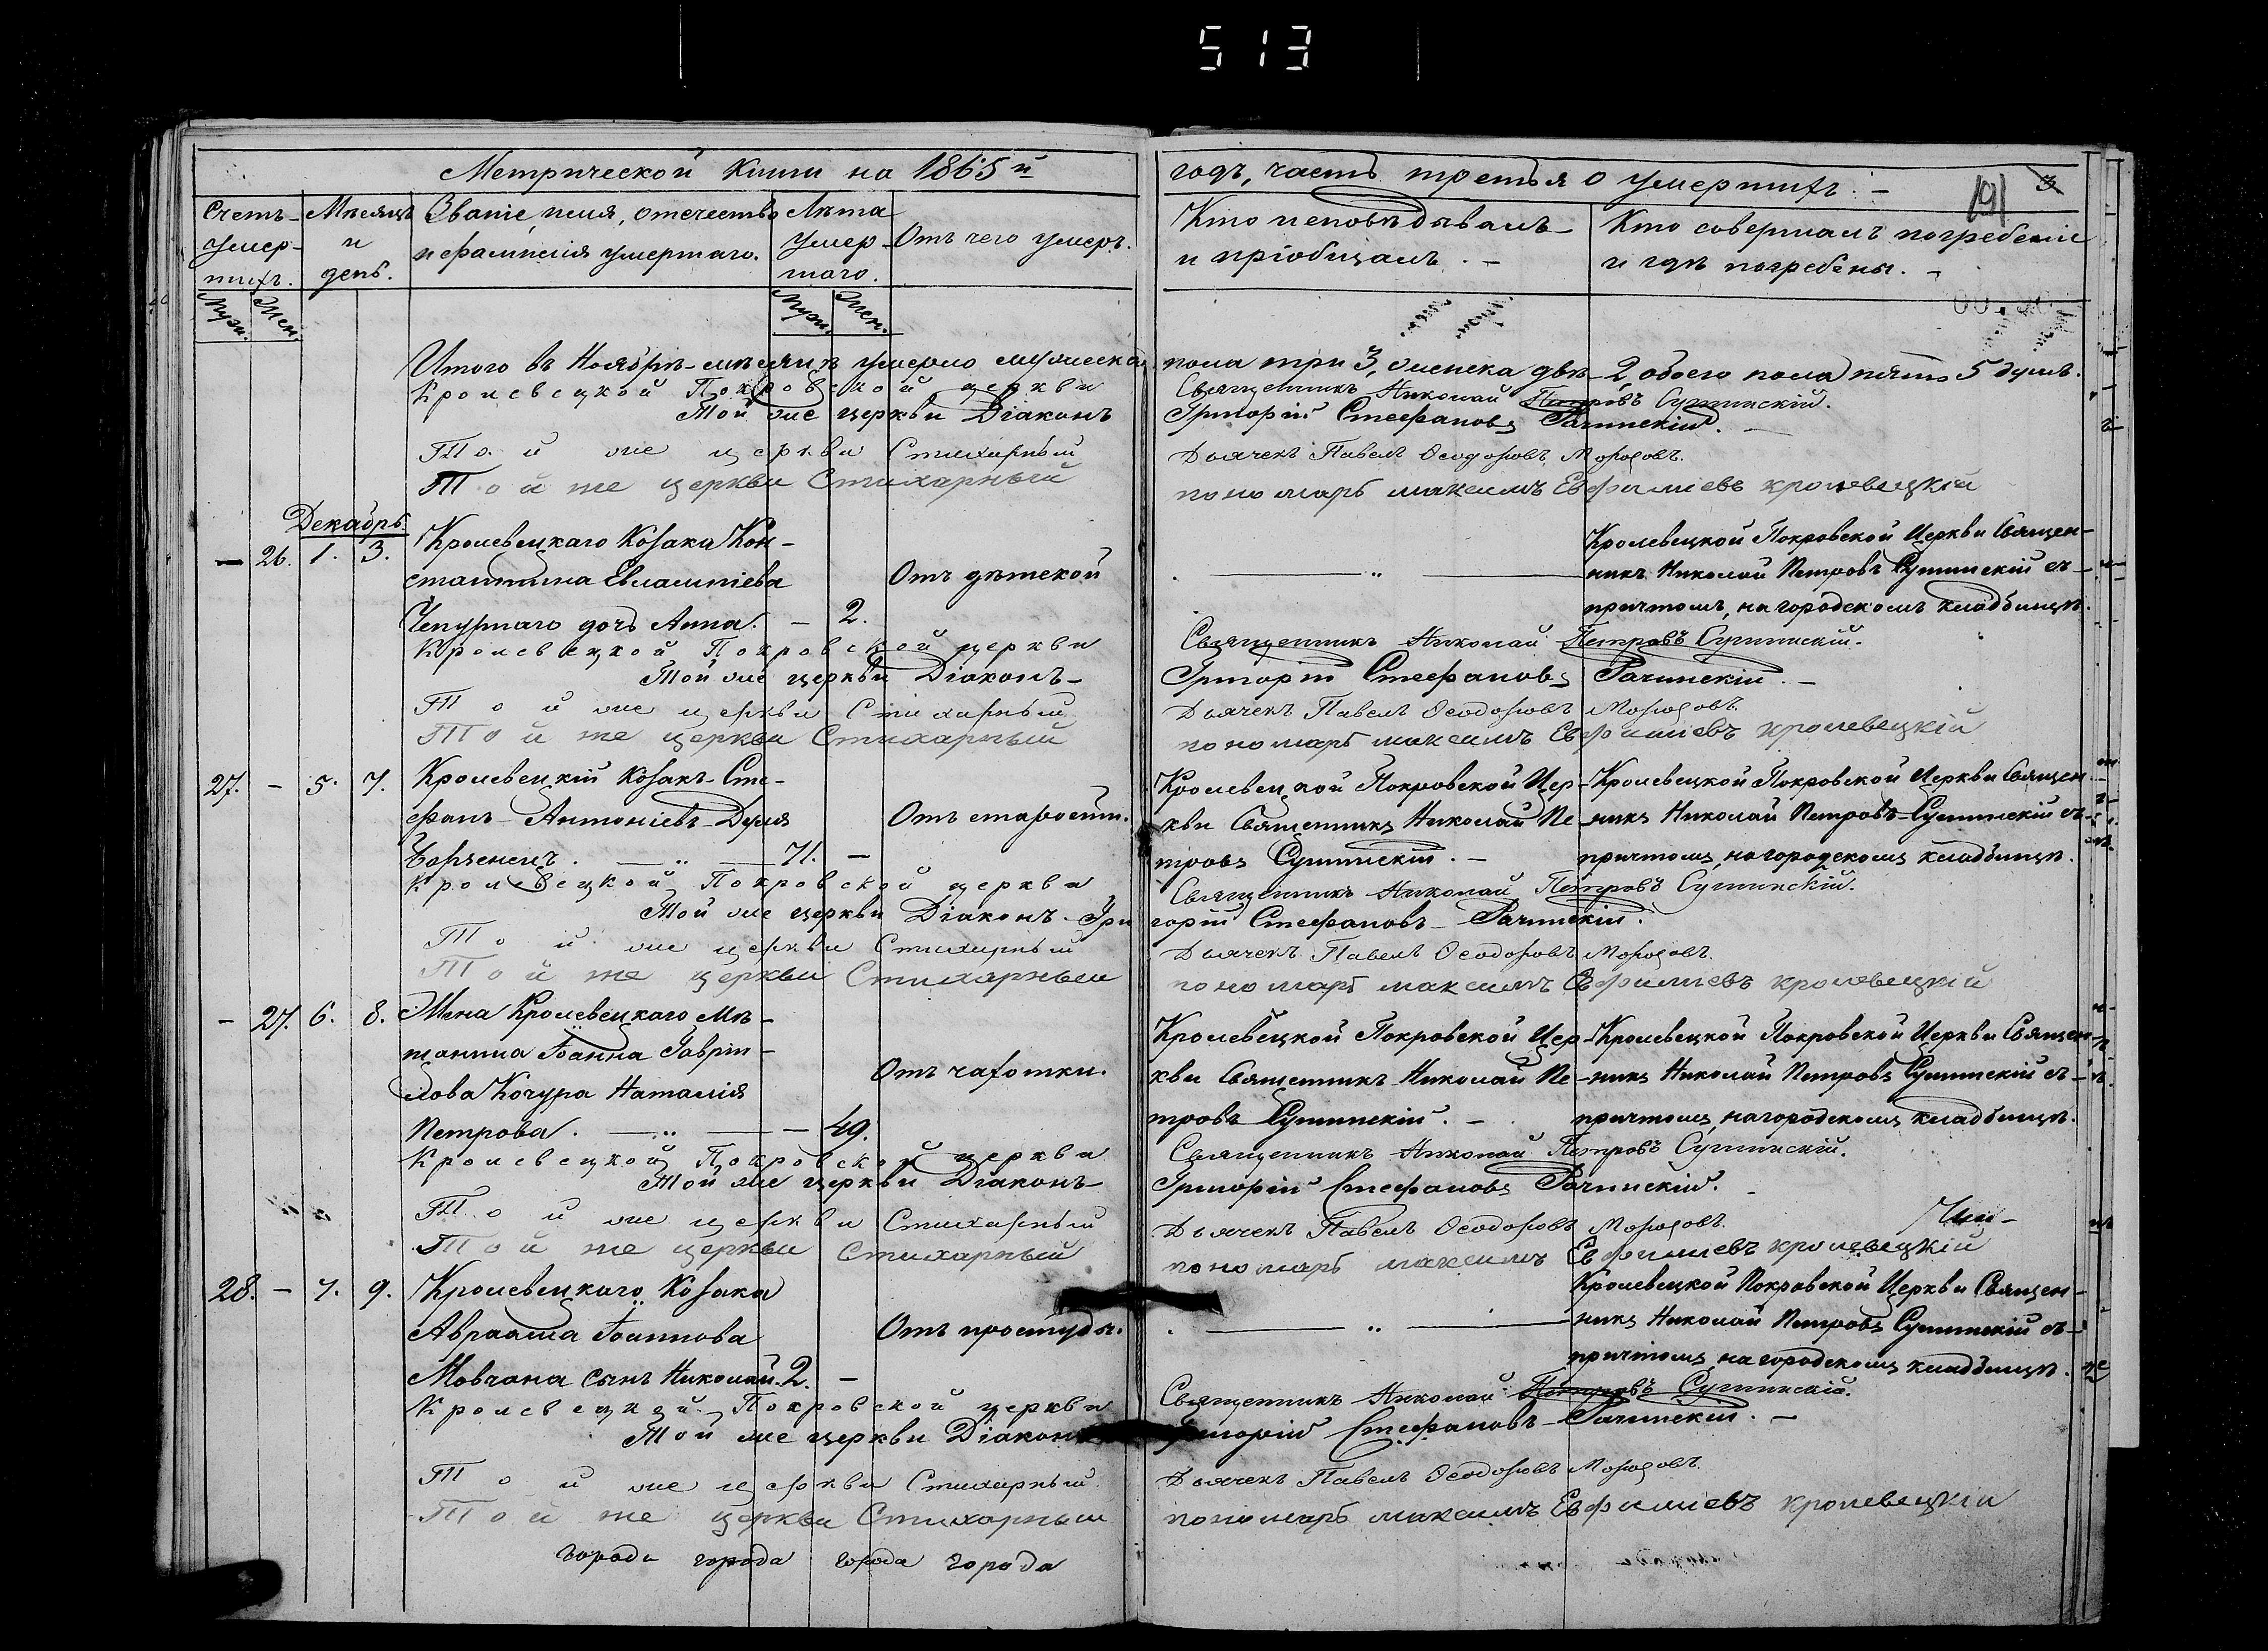 513
Метрической книги на 1865й
годъ, часть третья о умершихъ. –
191
3
Счетъ умер-шихъ.
Мѣсяцъ и день.
Званіе, имя, отечество и фамилія умершаго.
Лѣта умер-шаго.
Отъ чего умеръ.
Кто исповѣдывалъ и пріобщалъ. –
Кто совершалъ погребеніе и гдѣ погребены. –
Муж. Жен.
Муж. Жен.
Итого въ Ноябрѣ мѣсяцѣ умерло мужеска пола три 3, женска двѣ 2, обоего пола пять 5 душъ.
Кролевецкой Покровской церкви Священникъ Николай Петровъ
Той же церкви Діаконъ Григорій Стефановъ
Той же церкви Стихарный Дьячекъ Павелъ Ѳеодоровъ
Той же церкви Стихарный пономарь максимъ Евфиміевъ кролевецкій
Декабрь.
– 26. 1. 3. Кролевецкаго Козака Кон-
стантина Евлампіева
Чепурнаго дочь Анна. – 2.
Отъ дѣтской
Кролевецкой Покровской Церкви Священ-
никъ Николай Петровъ съ
причтомъ, на городскомъ кладбищѣ.
Кролевецкой Покровской церкви Священникъ Николай Петровъ
Той же церкви Діаконъ Григорій Стефановъ
Той же церкви Стихарный Дьячекъ Павелъ Ѳеодоровъ
Той же церкви Стихарный пономарь максимъ Евфиміевъ кролевецкій
27. – 5. 7. Кролевецкій Козакъ Сте-
фанъ Антоніевъ
71. –
Отъ старости.
Кролевецкой Покровской Цер-
кви Священникъ Николай Пе-
тровъ
Кролевецкой Покровской Церкви Священ-
никъ Николай Петровъ съ
причтомъ, на городскомъ кладбищѣ.
Кролевецкой Покровской церкви Священникъ Николай Петровъ
Той же церкви Діаконъ Гри горій Стефановъ
Той же церкви Стихарный Дьячекъ Павелъ Ѳеодоровъ
Той же церкви Стихарный пономарь максимъ Евфиміевъ кролевецкій
– 27. 6. 8. Жена Кролевецкаго Мѣ-
щанина Іоанна Гаврі-
лова Кочура Наталія
Петрова. – 49.
Отъ чахотки.
Кролевецкой Покровской Цер-
кви Священникъ Николай Пе-
тровъ
Кролевецкой Покровской Церкви Священ-
никъ Николай Петровъ съ
причтомъ, на городскомъ кладбищѣ.
Кролевецкой Покровской церкви Священникъ Николай Петровъ
Той же церкви Діаконъ Григорій Стефановъ
Той же церкви Стихарный Дьячекъ Павелъ Ѳеодоровъ
Той же церкви Стихарный пономарь максимъ Евфиміевъ кролевецкій
28. – 7. 9. Кролевецкаго Козака
Авраама Іоаннова
Мовчана сынъ Николай. 2. –
Отъ простуды.
Кролевецкой Покровской Церкви Священ-
никъ Николай Петровъ съ
причтомъ, на городскомъ кладбищѣ.
Кролевецкой Покровской церкви Священникъ Николай Петровъ
Той же церкви Діаконъ Григорій Стефановъ
Той же церкви Стихарный Дьячекъ Павелъ Ѳеодоровъ
Той же церкви Стихарный пономарь максимъ Евфиміевъ кролевецкій
города города города города